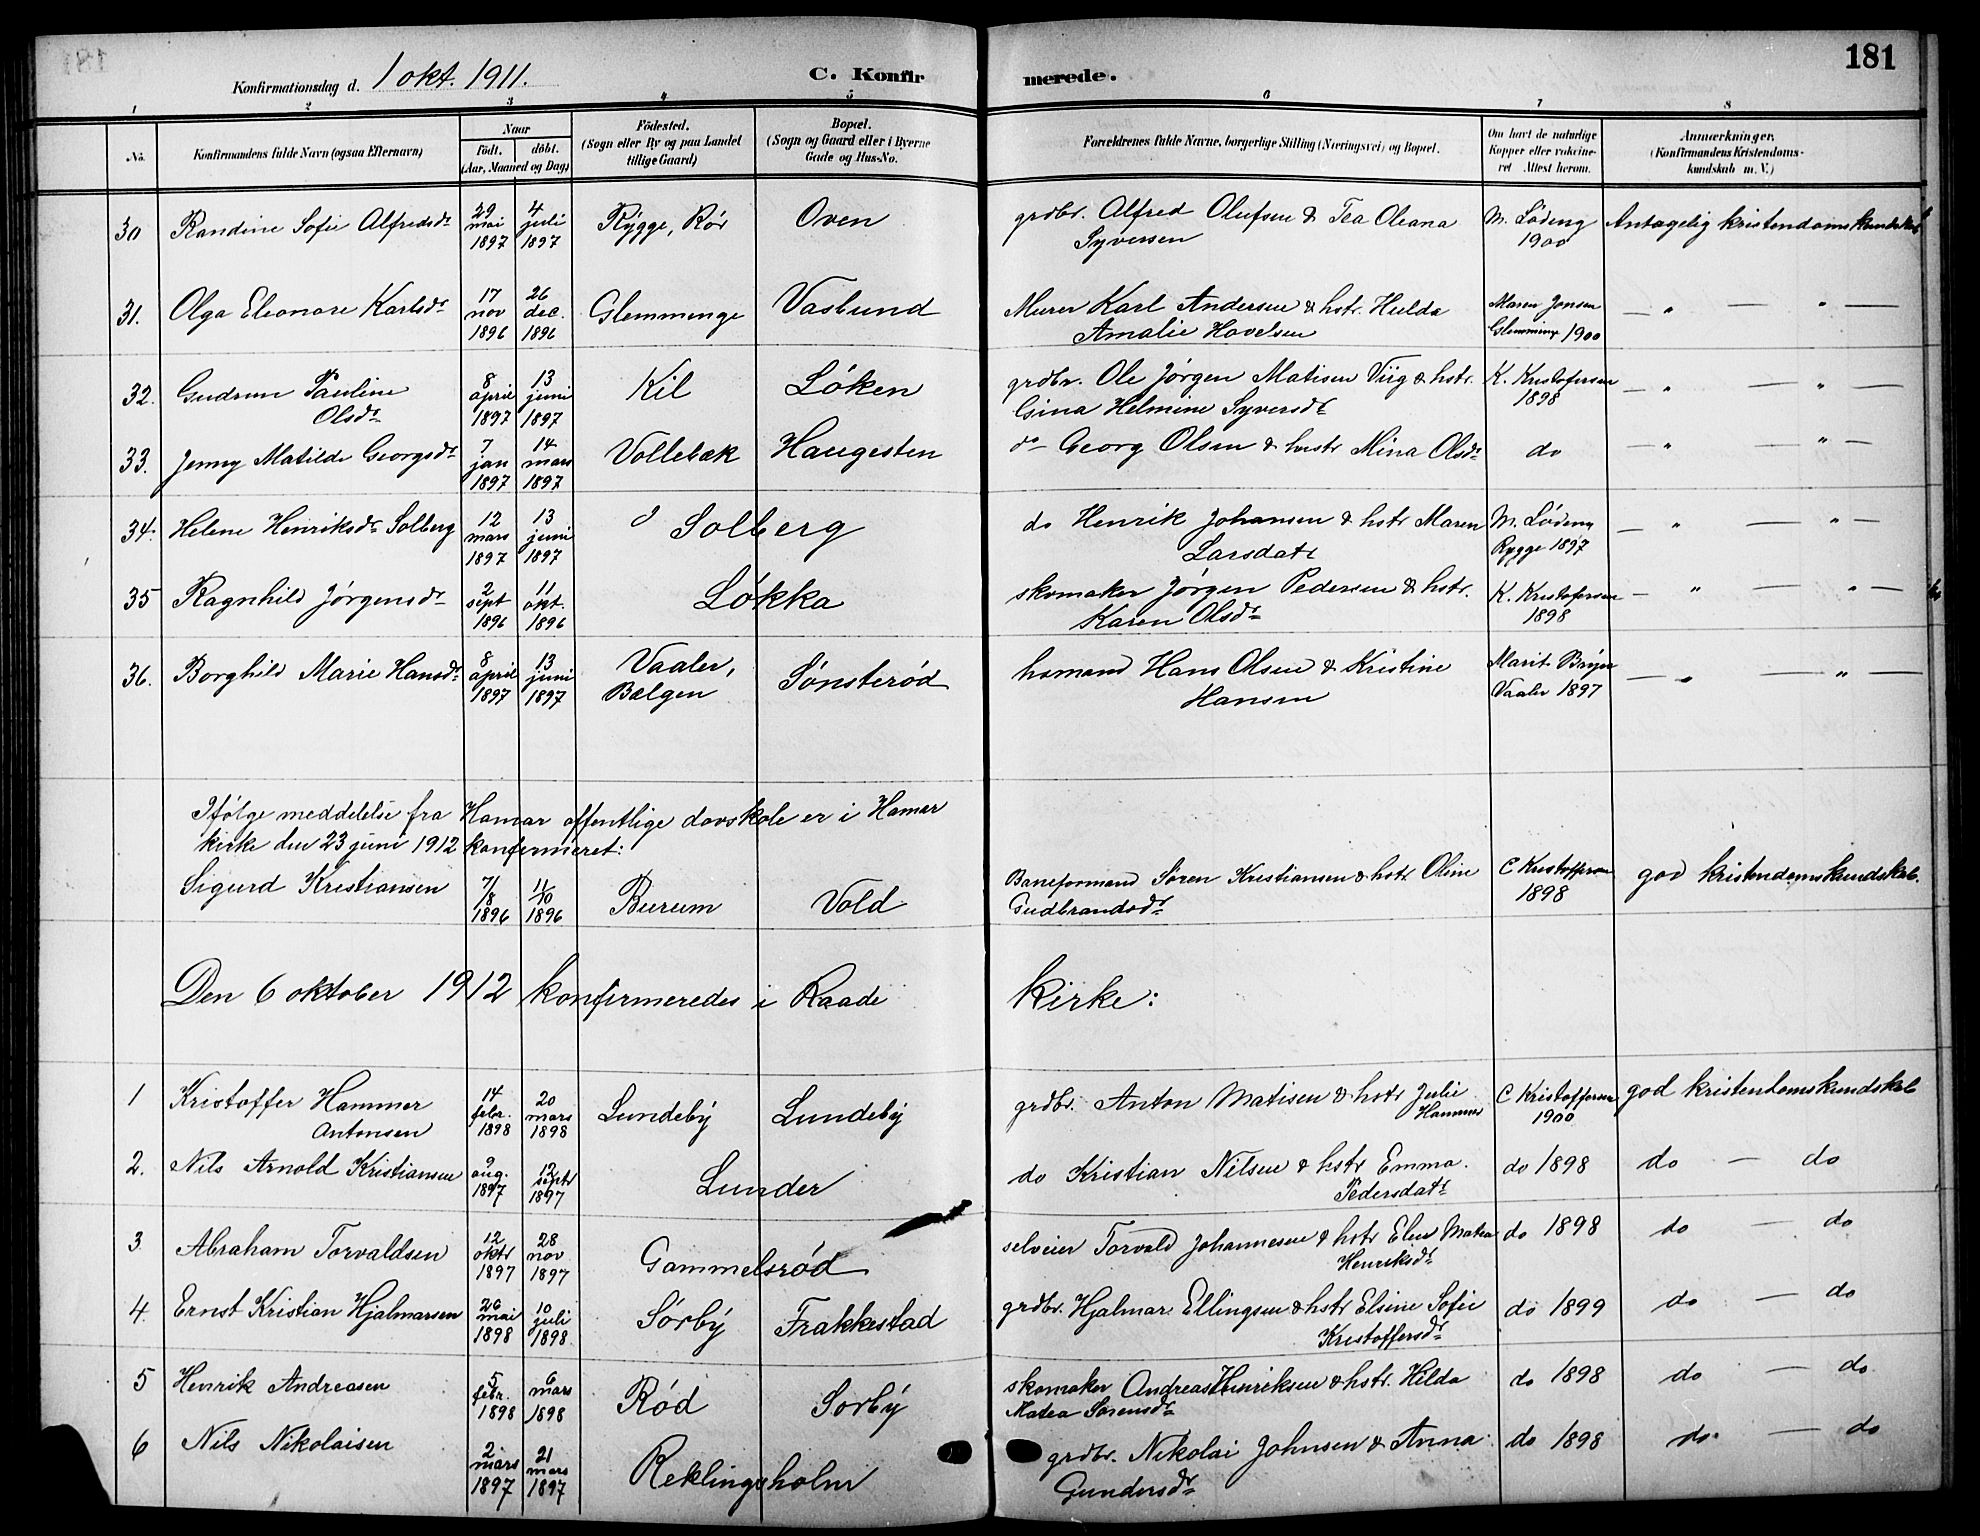 181
Konfirmationsdag d. 1 okt. 1911.
C. Konfirmerede.
1 2 3 4 5 6 7 8
No.
Konfirmandens fulde Navn (ogsaa Efternavn)
Naar
födt. döbt.
(Aar, Maaned og Dag)
Födested.
(Sogn eller By og paa Landet
tillige Gaard)
Bopæl.
(Sogn og Gaard eller i Byerne
Gade og Hus-No.
Forældrenes fulde Navne, borgerlige Stilling (Næringsvei) og Bopæl.
Om havt de naturlige
Kopper eller vaccine-
ret Attest herom.
Anmærkninger,
(Konfirmandens Kristendoms-
kundskab m. V.)
30 Randine Sofie Alfredsdr 29 mai 1897 4 juli 1897 Rygge, Rör Oven grdbr. Alfred Olufsen & Tea Oleana
Syversen M. Lödeng 1900 Antagelig kristendomskundskab
31. Olga Eleonore Karlsdr 17 nov 1896 26 dec. 1896 Glemminge Vaslund Murer Karl Andersen & hstr. Hulda
Amalie Hovelsen Maren Jonsen Glemminge 1900 — " — " —
32. Gudrun Pauline
Olsdr 8 april 1897 13 juni 1897 Kil Löken grdbr. Ole Jörgen Matisen Viig & hstr.
Gina Helmine Syversdr K. Kristofersen 1898 — " — " —
33. Jenny Matilde Georgsdr 7 jan 1897 14 mars 1897 Vollebæk Haugesten do Georg Olsen & hustr Mina Olsdr do — " — " —
34. Helene Henriksdr Solberg 12 mars 1897 13 juni 1897 Solberg do Henrik Johansen & hstr Maren
Larsdatr M. Lödeng Rygge 1897 — " — " —
35 Ragnhild Jörgensdr 2 sept 1896 11 okt. 1896 Lökka skomaker Jörgen Pedersen & hstr.
Karen Olsdr K. Kristofersen 1898 — " — " —
36. Borghild Marie Hansdr 8 april 1897 13 juni 1897 Vaaler,
Bælgen Sönsteröd husmand Hans Olsen & Kristine
Hansen Marit Bryn Vaaler 1897 — " — " —
Ifölge meddelelse fra Hamar offentlige dövskole er i Hamar
kirke den 23 juni 1912 konfirmeret:
Sigurd Kristiansen 7/8 1896 11/10 1896 Burum Vold Baneformand Sören Kristiansen & hstr Oline
Gudbrandsdr C Kristoffersen 1898 god kristendomskundskab.
Den 6 oktober 1912 konfirmeredes i Raade kirke:
1 Kristoffer Hammer
Antonsen 14 febr. 1898 20 mars 1898 Lundeby Lundeby grdbr. Anton Matisen & hstr Julie
Hammer C Kristoffersen 1900 god kristendomskundskab
2. Nils Arnold Kristiansen 9 aug. 1897 12 septr 1897 Lunder do Kristian Nilsen & hstr Emma
Pedersdatr do 1898 do — do
3. Abraham Torvaldsen 12 oktr 1897 28 nov. 1897 Gammelsröd selveier Torvald Johannesen & hstr Elen Matea
Henriksdr do 1898 do — do
4. Ernst Kristian Hjalmarsen 26 mai 1898 10 juli 1898 Sörby Frakkestad grdbr. Hjalmar Ellingsen & hstr Elsine Sofie
Kristoffersdr do 1899 do — do
5 Henrik Andreasen 5 febr. 1898 6 mars 1898 Röd Sörby skomaker Andreas Henriksen & hstr. Hilda
Matea Sörensdr do 1898 do — do
6 Nils Nikolaisen 2 mars 1897 21 mars 1897 Reklingsholm grdbr. Nikolai Johnsen & Anna
Gundersdr do 1898 do — do